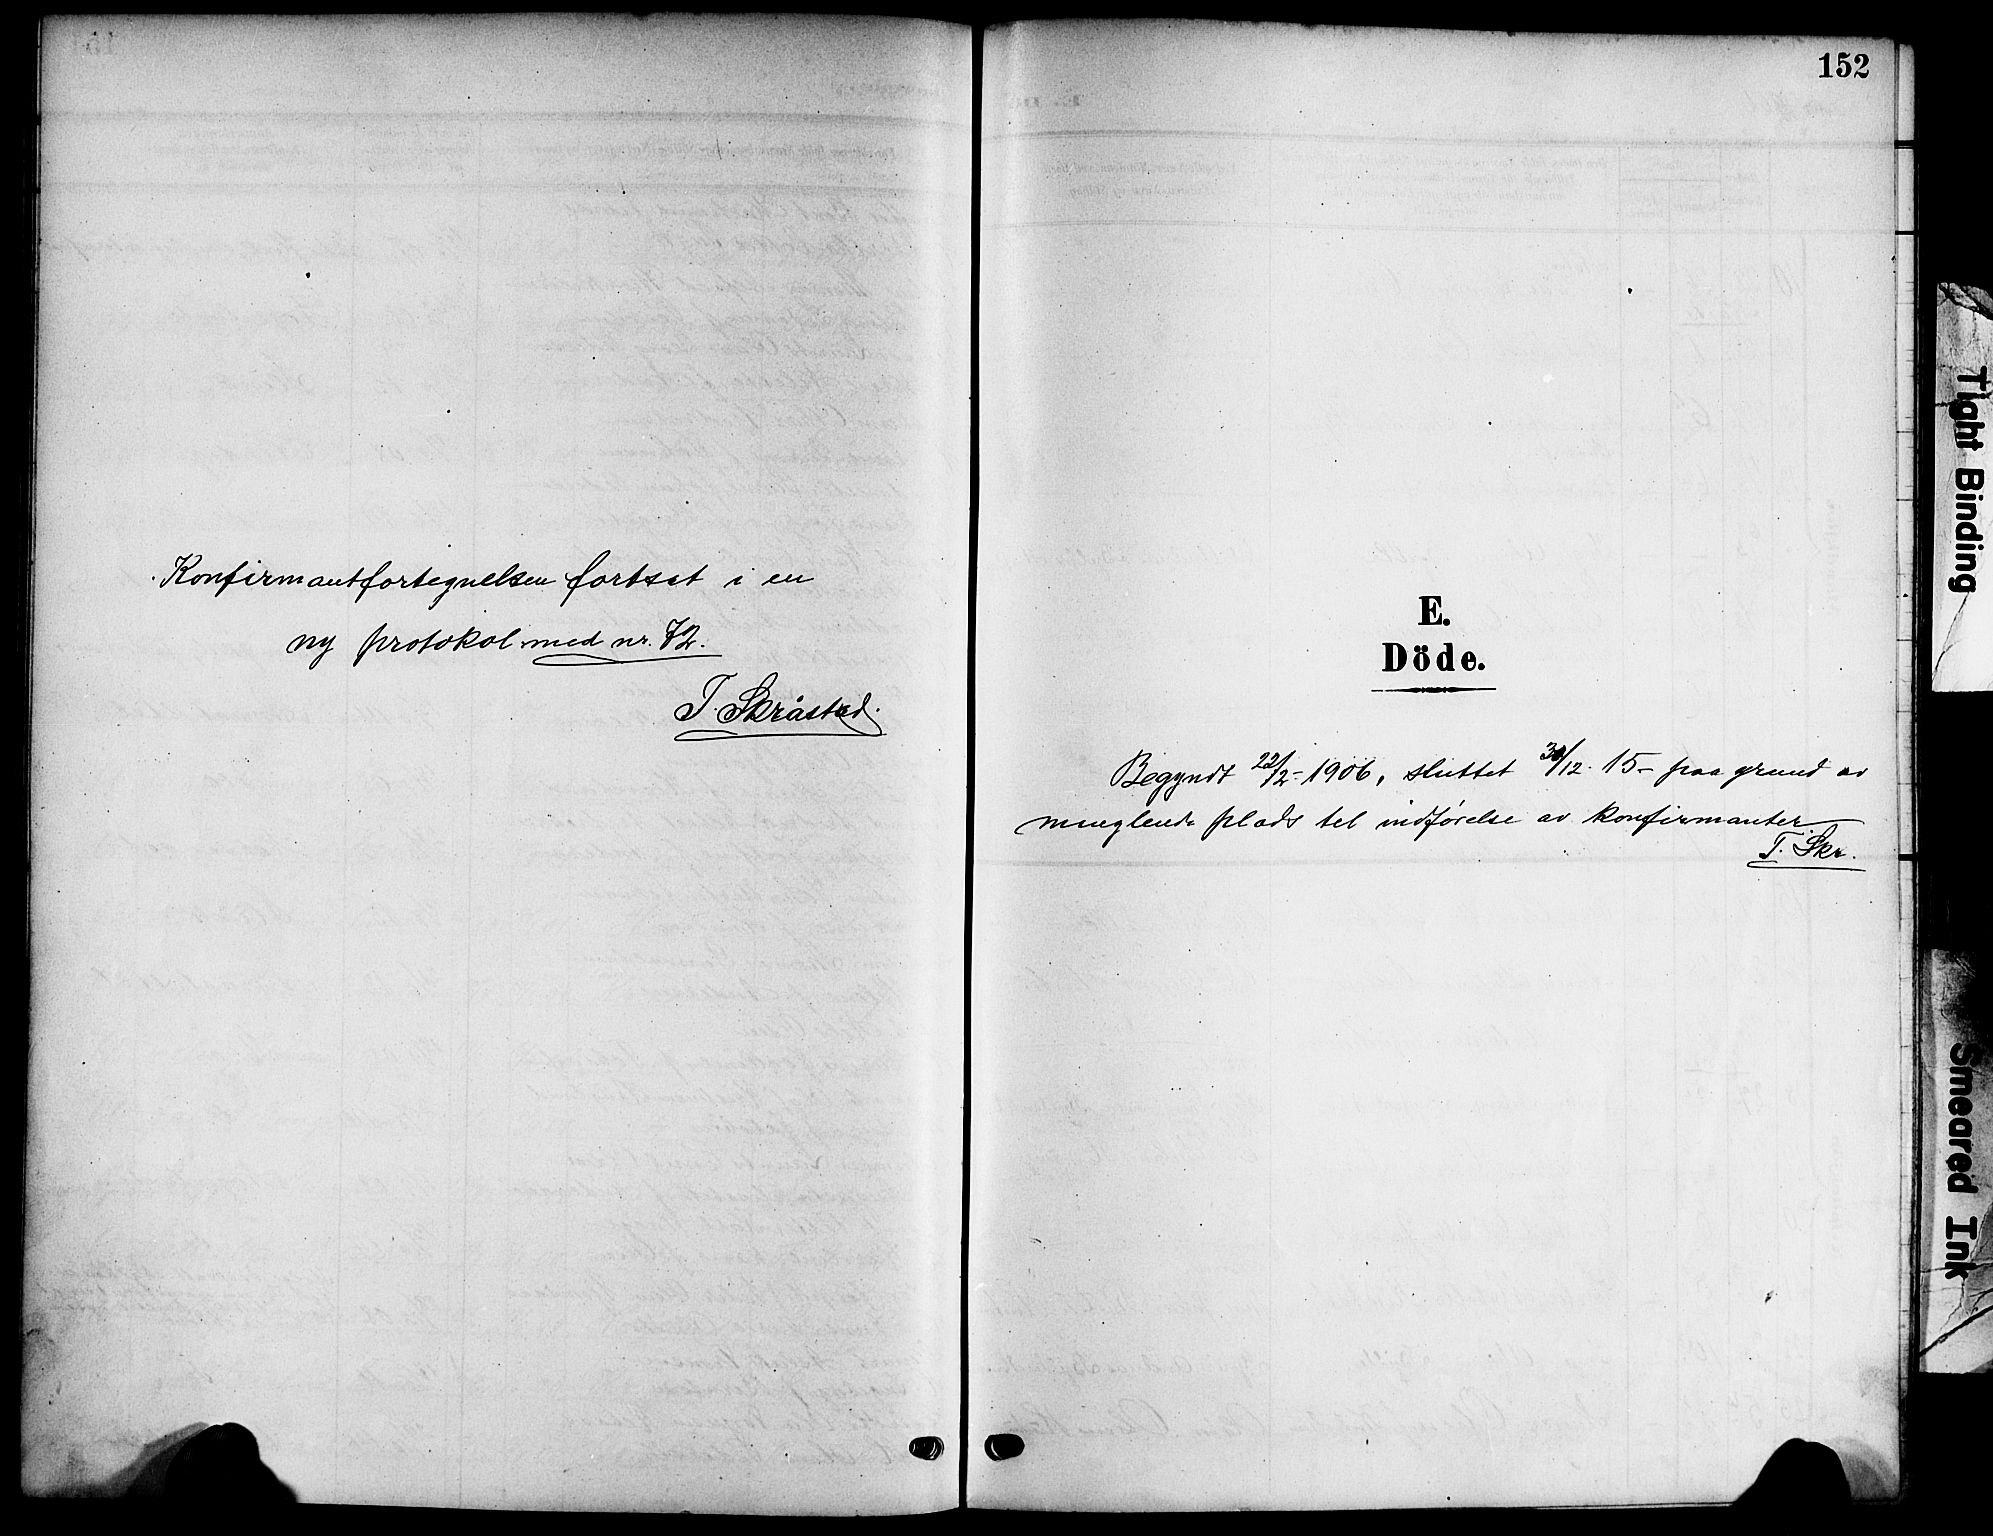 Konfirmantfortegnelsen fortsat i en
ny protokol med nr. 72.
T. Skråstad.
152
E.
Döde.
Begyndt 22/2-1906, sluttet 30/12. 15- paa grund av
manglende plads til indførelse av konfirmanter
T. Skr.
Tight Binding
Smeared Ink